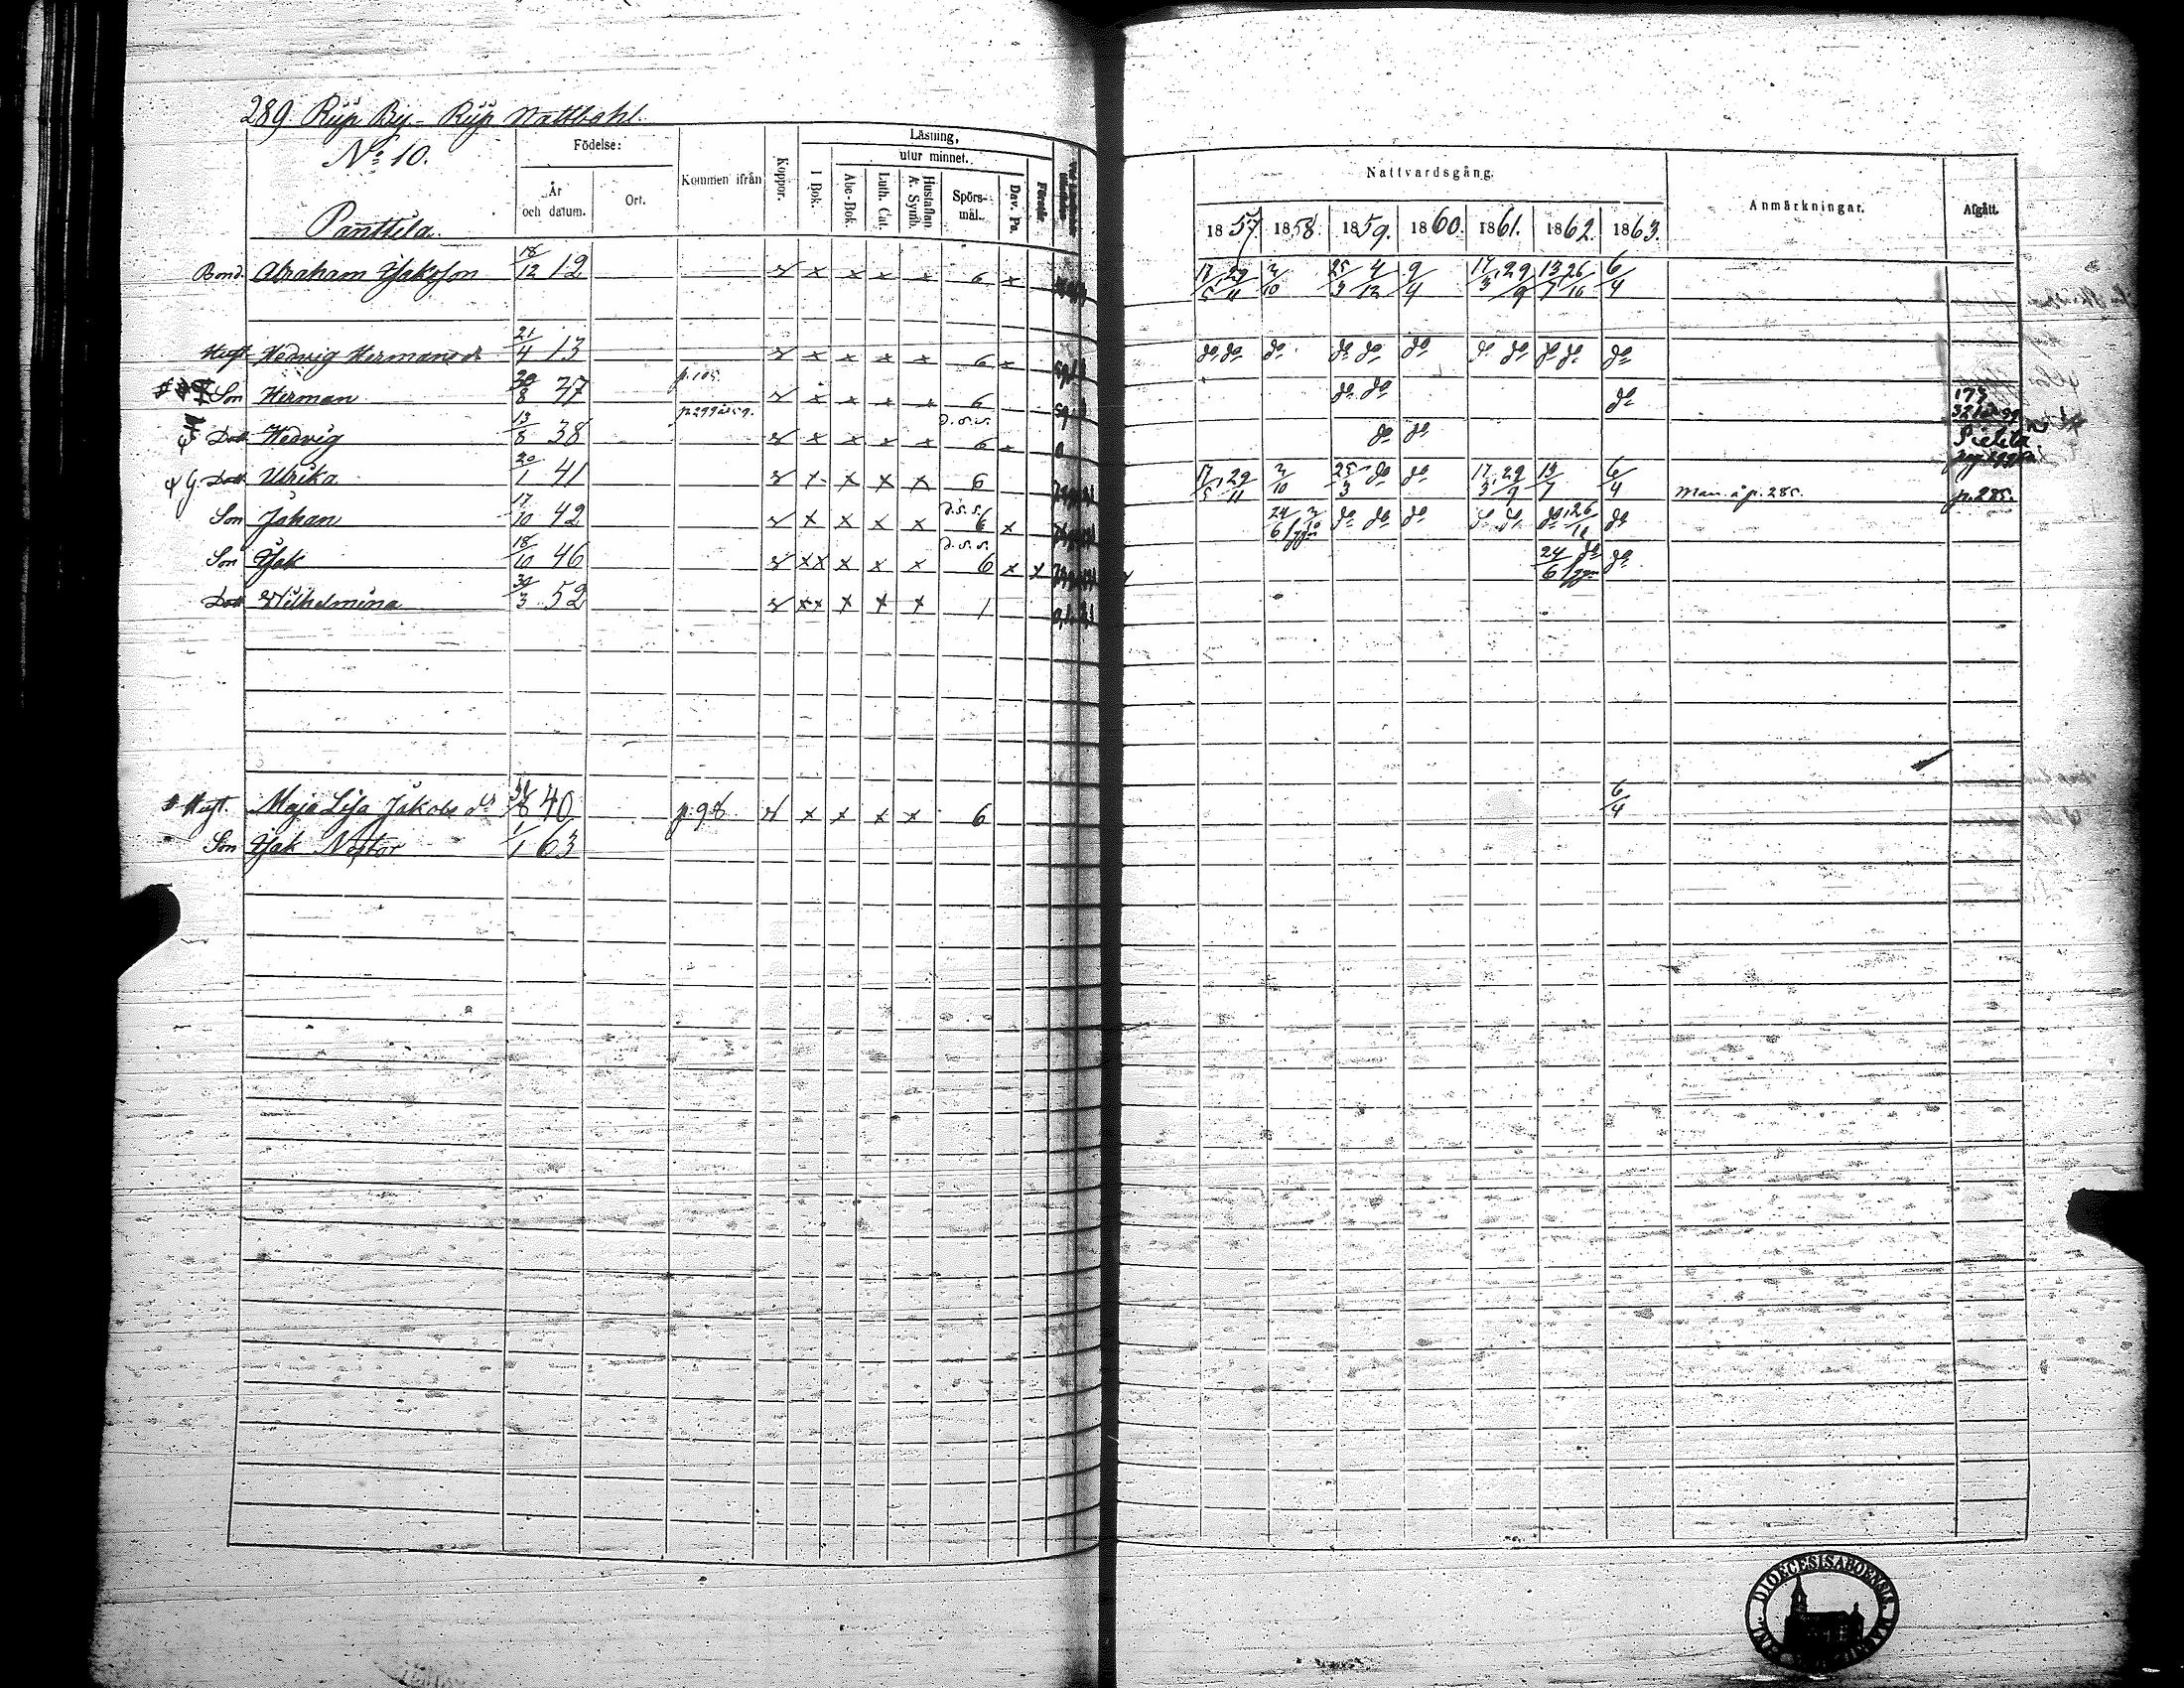 289 Rüp By – Rüp Nattbohl.
No 10.
Panttila.
Födelse:
År och datum.
Ort.
Kommen ifrån
Koppor.
Läsning,
utur minnet.
I Bok.
Abc-Bok.
Luth. Cat.
Hustaflan A. Symb.
Spörs-mål.
Dav. Ps.
Förstår.
Nattvardsgång.
1857. 1858. 1859. 1860. 1861. 1862. 1863.
Anmärkningar.
Afgått.
Bond. Abraham Isaksson 18/12 12 x x x x 6 x 17/5 29/11 2/10 25/3 4/12 9/4 17/3 29/9 13/7 26/10 6/4
Hust. Hedvig Hermansdr 21/4 13 x x x x 6 x do do do do do do do do do do do
Son Herman 8 37 p. 105. x x x x 6 do do do 173
Dott. Hedvig 13/8 38 p. 299 x x x x d.s.s. 6 do do
Dott. Ulrika 20/1 41 x x x x 6 17/5 29/11 2/10 25/3 do do 17/3 29/9 13/7 6/4 Man. å p. 285. p. 285.
Son Johan 17/10 42 x x x x d.s.s. 6 x 24/6 2/10 do do do do do do 26/10 do
Son Isak 18/10 46 xx x x x d.s.s. 6 x x 24/6 do do
Dott. Wilhelmina 30/3 52 xx x x x 1
Hust. Maja Lisa Jakobsdr 8 40 p. 98 x x x x 6 6/4
Son Isak Nestor 1/1 63
DIOECESIS ABOENSIS